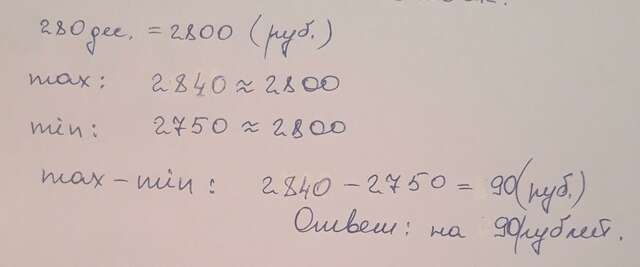 280 дес. = 2800 (руб.)
max: 2840 ≈ 2800
min: 2750 ≈ 2800
max – min: 2840 – 2750 = 90(руб.)
Ответ: на 90рублей.